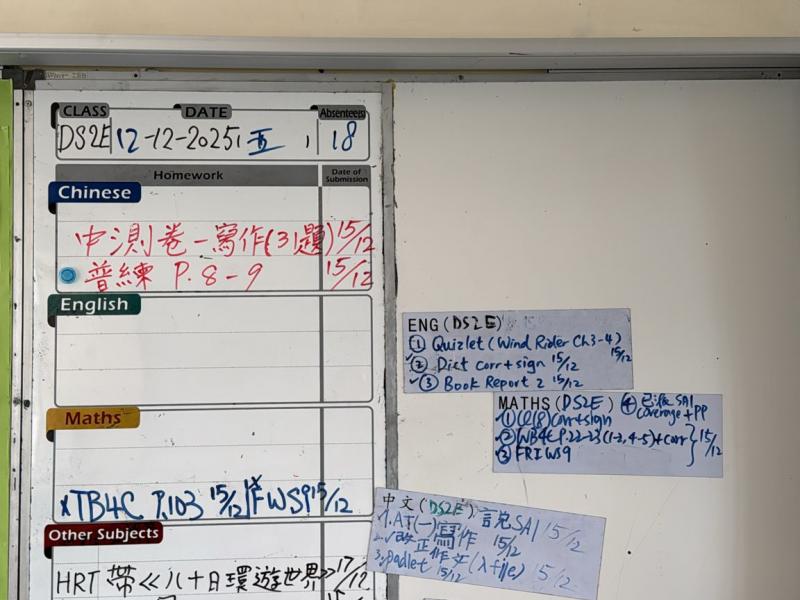 CLASS DATE Absentees
DS2E 12-12-2025, 五 18
Homework Date of Submission
Chinese
中測卷一寫作(31題) 15/12
普練 P.8-9 15/12
English
Maths
TB4C P.103 15/12 FWS9 15/12
Other Subjects
HRT 帶<<八十日環遊世界>> 17/12
ENG (DS2E)
① Quizlet (Wind Rider Ch3-4) 15/12
② Dict corr+sign 15/12
③ Book Report 2 15/12
MATHS (DS2E) ④ SA1 coverage+PP
① corr+sign
② WB4C P.22-23 (1-2, 4-5)+corr 15/12
③ FRI WS9
中文 (DS2E)
1. AT(一)寫作 SA1 15/12
2. 改正 15/12
3. padlet 作文 15/12 15/12